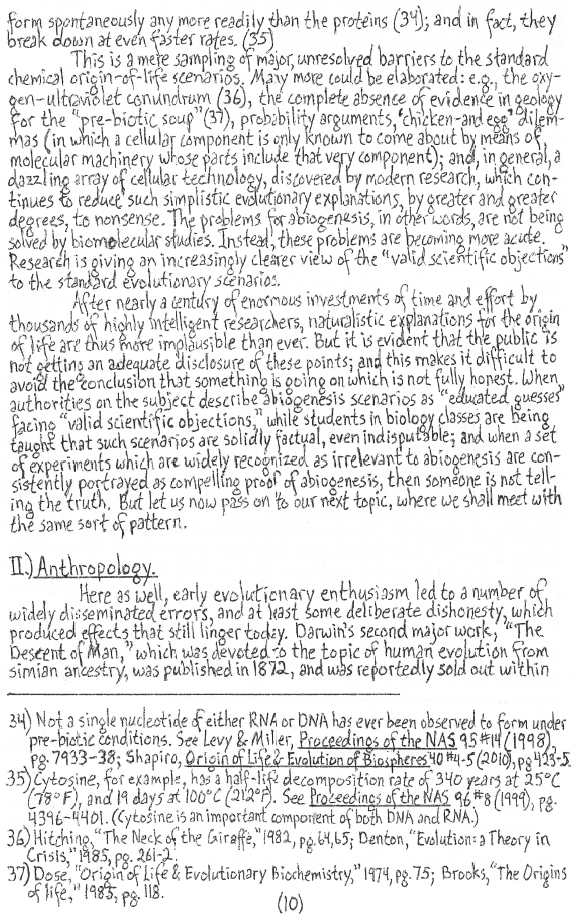 form spontaneously any more readily than the proteins (34); and in fact, they
break down at even faster rates. (35)
This is a mere sampling of major, unresolved barriers to the standard
chemical origin-of-life scenarios. Many more could be elaborated: e.g., the oxy-
gen-ultraviolet conundrum (36), the complete absence of evidence in geology
for the "pre-biotic soup" (37), probability arguments, "chicken-and egg" dilem-
mas (in which a cellular component is only known to come about by means of
molecular machinery whose parts include that very component); and, in general, a
dazzling array of cellular technology, discovered by modern research, which con-
tinues to reduce such simplistic evolutionary explanations, by greater and greater
degrees, to nonsense. The problems for abiogenesis, in other words, are not being
solved by biomolecular studies. Instead, these problems are becoming more acute.
Research is giving an increasingly clearer view of the "valid scientific objections"
to the standard evolutionary scenarios.
After nearly a century of enormous investments of time and effort by
thousands of highly intelligent researchers, naturalistic explanations for the origin
of life are thus more implausible than ever. But it is evident that the public is
not getting an adequate disclosure of these points; and this makes it difficult to
avoid the conclusion that something is going on which is not fully honest. When
authorities on the subject describe abiogenesis scenarios as "educated guesses"
facing "valid scientific objections," while students in biology classes are being
taught that such scenarios are solidly factual, even indisputable; and when a set
of experiments which are widely recognized as irrelevant to abiogenesis are con-
sistently portrayed as compelling proof of abiogenesis, then someone is not tell-
ing the truth. But let us now pass on to our next topic, where we shall meet with
the same sort of pattern.
II.) Anthropology.
Here as well, early evolutionary enthusiasm led to a number of
widely disseminated errors, and at least some deliberate dishonesty, which
produced effects that still linger today. Darwin's second major work, "The
Descent of Man," which was devoted to the topic of human evolution from
simian ancestry, was published in 1872, and was reportedly sold out within
34) Not a single nucleotide of either RNA or DNA has ever been observed to form under
pre-biotic conditions. See Levy & Miller, Proceedings of the NAS 95 #14 (1998),
pg. 7933-38; Shapiro, Origin of Life & Evolution of Biospheres 40 #4-5 (2010), pg 423-5.
35) Cytosine, for example, has a half-life decomposition rate of 340 years at 25°C
(78°F), and 19 days at 100°C (212°F). See Proceedings of the NAS 96 #8 (1999), pg.
4396-4401. (Cytosine is an important component of both DNA and RNA.)
36) Hitching, "The Neck of the Giraffe," 1982, pg. 64,65; Denton, "Evolution: a Theory in
Crisis," 1985, pg. 261-2.
37) Dose, "Origin of Life & Evolutionary Biochemistry," 1974, pg. 75; Brooks, "The Origins
of Life," 1985, pg. 118.
(10)